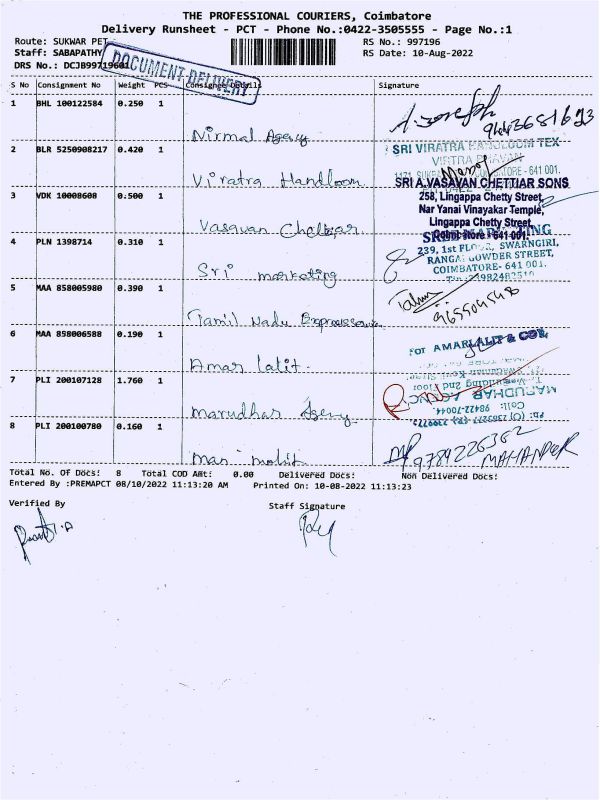 THE PROFESSIONAL COURIERS, Coimbatore
Delivery Runsheet - PCT - Phone No.:0422-3505555 - Page No.:1
Route: SUKWAR PET
RS No.: 997196
Staff: SABAPATHY
RS Date: 10-Aug-2022
DRS No.: DCJB99719601
DOCUMENT DELIVERY
S No Consignment No Weight PCS Consignee Details Signature
1 BHL 100122584 0.250 1 Nirmal Agency
2 BLR 5250908217 0.420 1 Viratra Handloom
SRI VIRATRA HANDLOOM TEX
Manoj
3 VDK 10008608 0.500 1 Vasavan Chettiar
SRI A.VASAVAN CHETTIAR SONS
258, Lingappa Chetty Street,
Nar Yanai Vinayakar Temple,
Lingappa Chetty Street,
Coimbatore - 641 001.
4 PLN 1398714 0.310 1 Sri marketing
239, 1st FLOOR, SWARNGIRI,
RANGAI GOWDER STREET,
COIMBATORE- 641 001.
5 MAA 858005980 0.390 1 Tamil Nadu
6 MAA 858006588 0.190 1 Amar lalit.
For AMARLALIT & CO
7 PLI 200107128 1.760 1 Marudhar Agency
MARUDHAR AGENCY
8 PLI 200100780 0.160 1
9789226362
MAHANDER
Total No. Of Docs: 8 Total COD Amt: 0.00 Delivered Docs: Non Delivered Docs:
Entered By :PREMAPCT 08/10/2022 11:13:20 AM Printed On: 10-08-2022 11:13:23
Verified By
Staff Signature